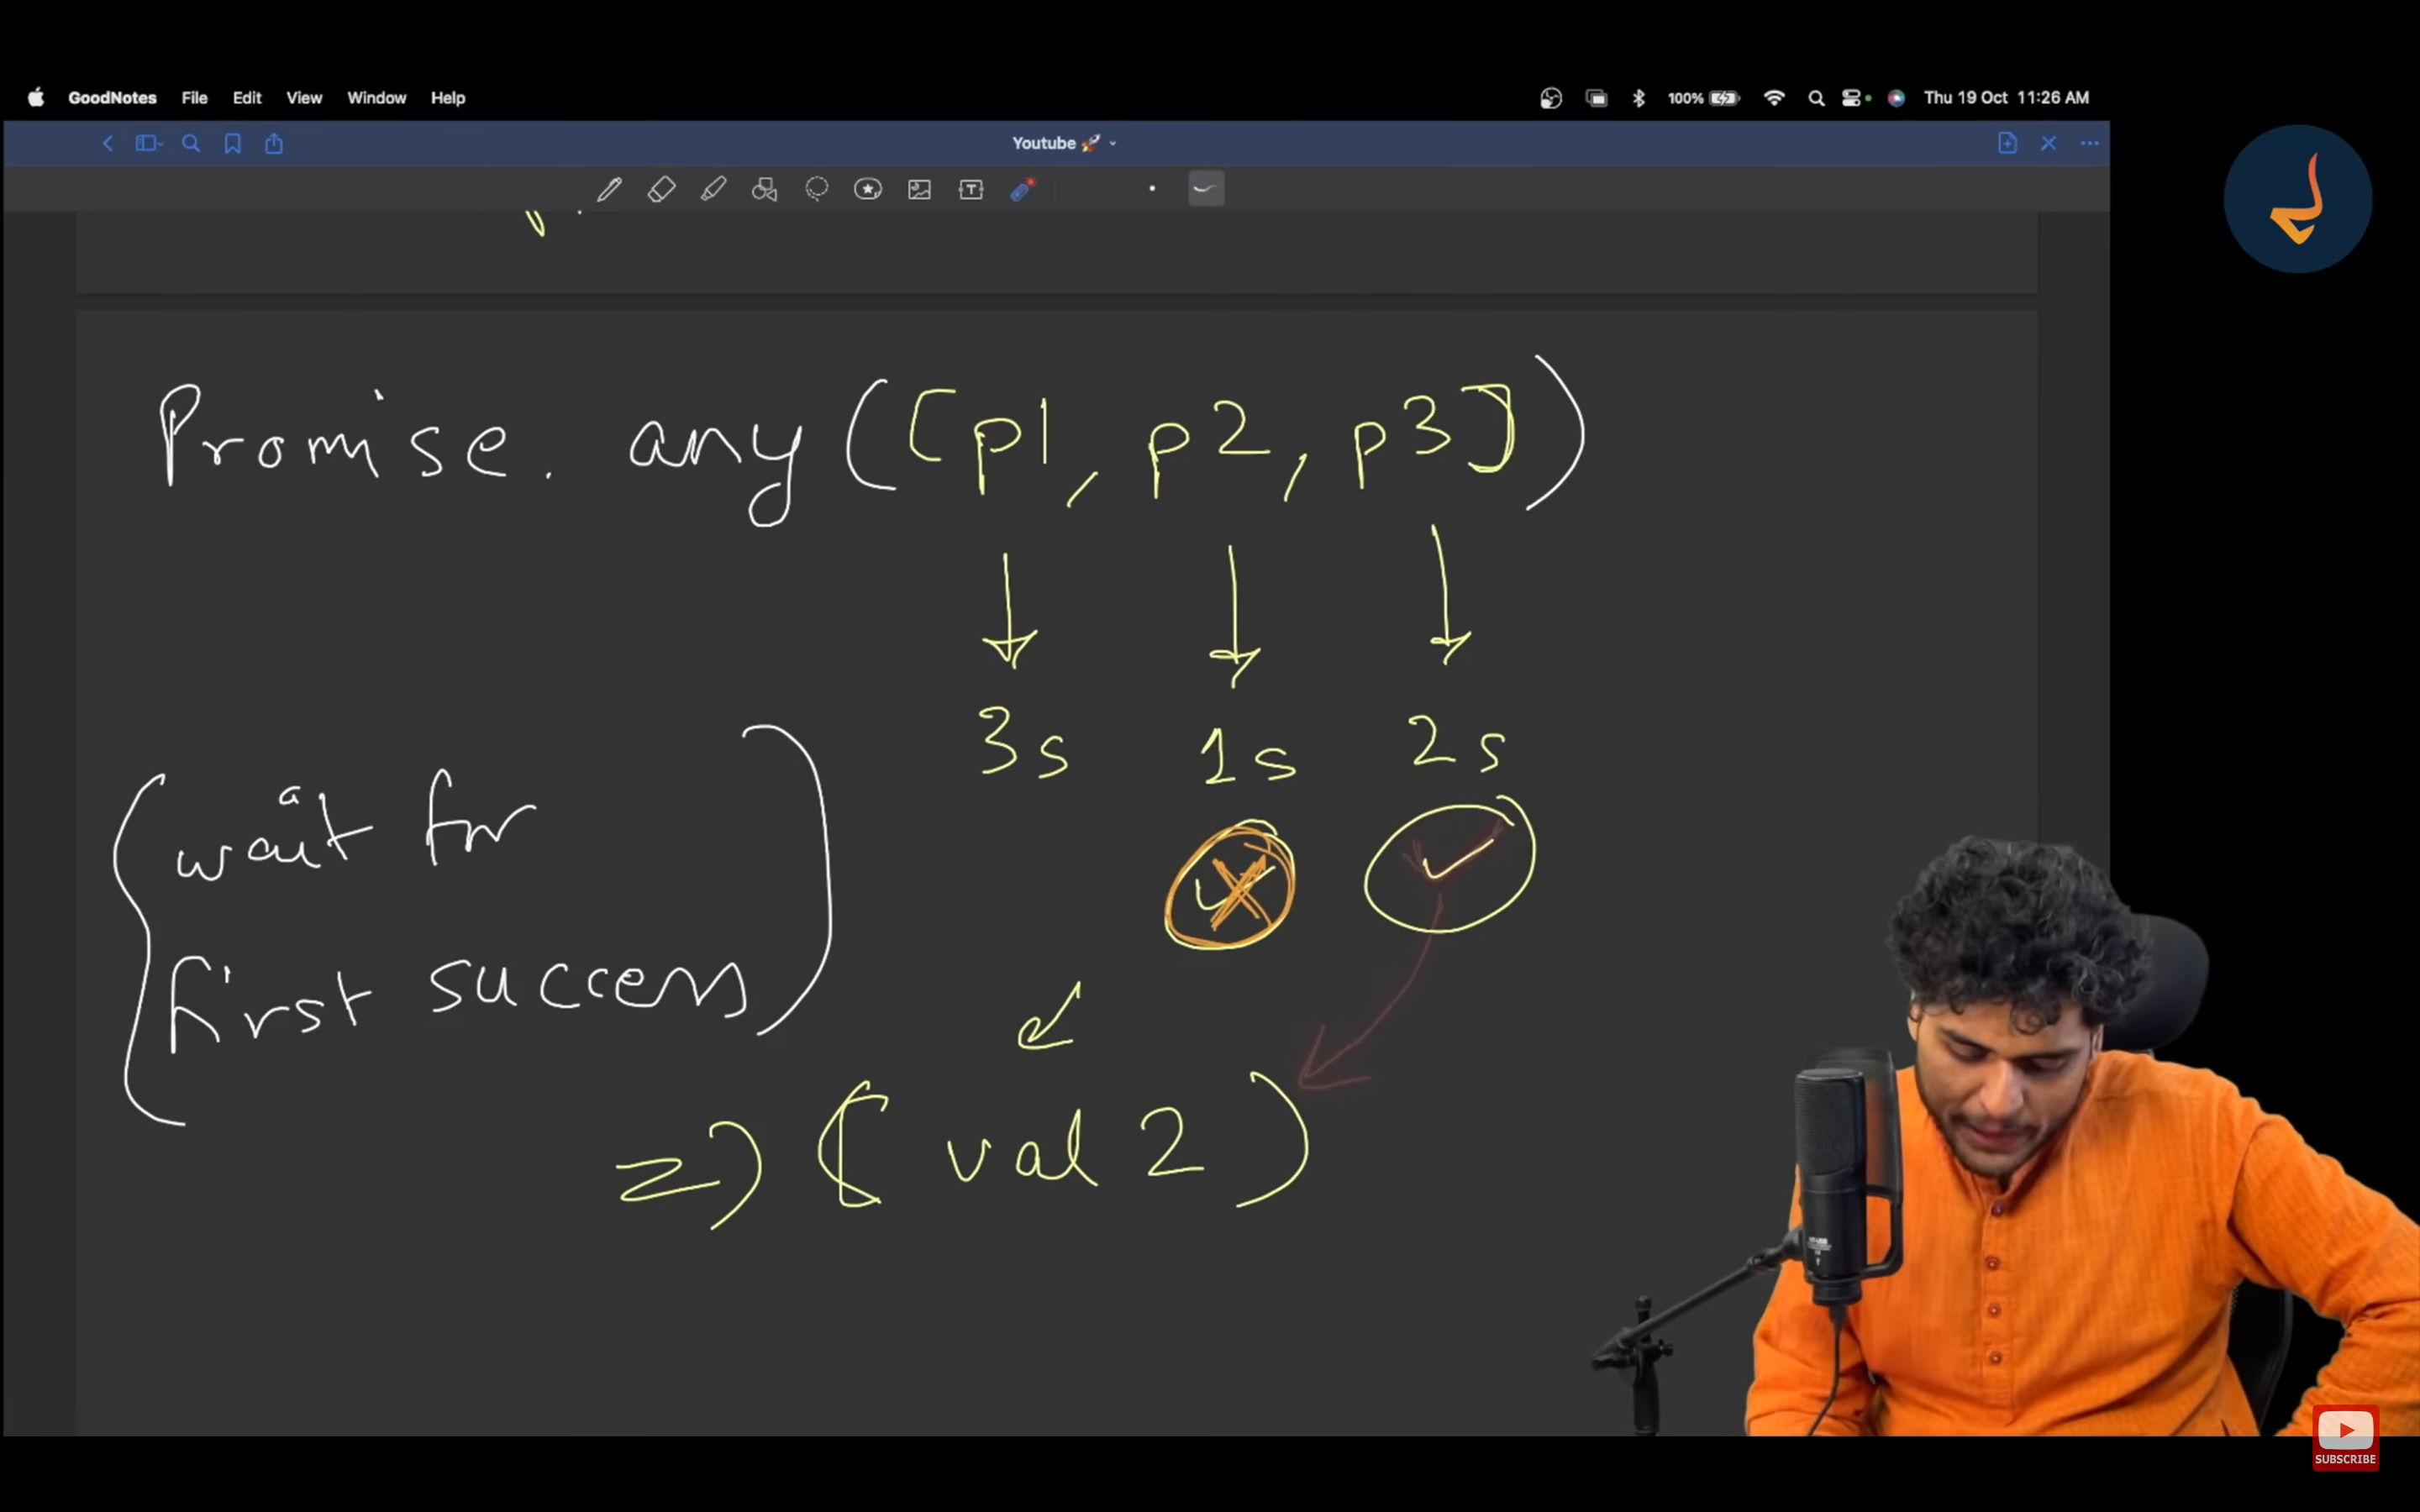 GoodNotes File Edit View Window Help 100% Thu 19 Oct 11:26 AM
Youtube 🚀
Promise. any([p1, p2, p3])
3s 1s 2s
wait for a
first success
=> ( val 2 )
SUBSCRIBE